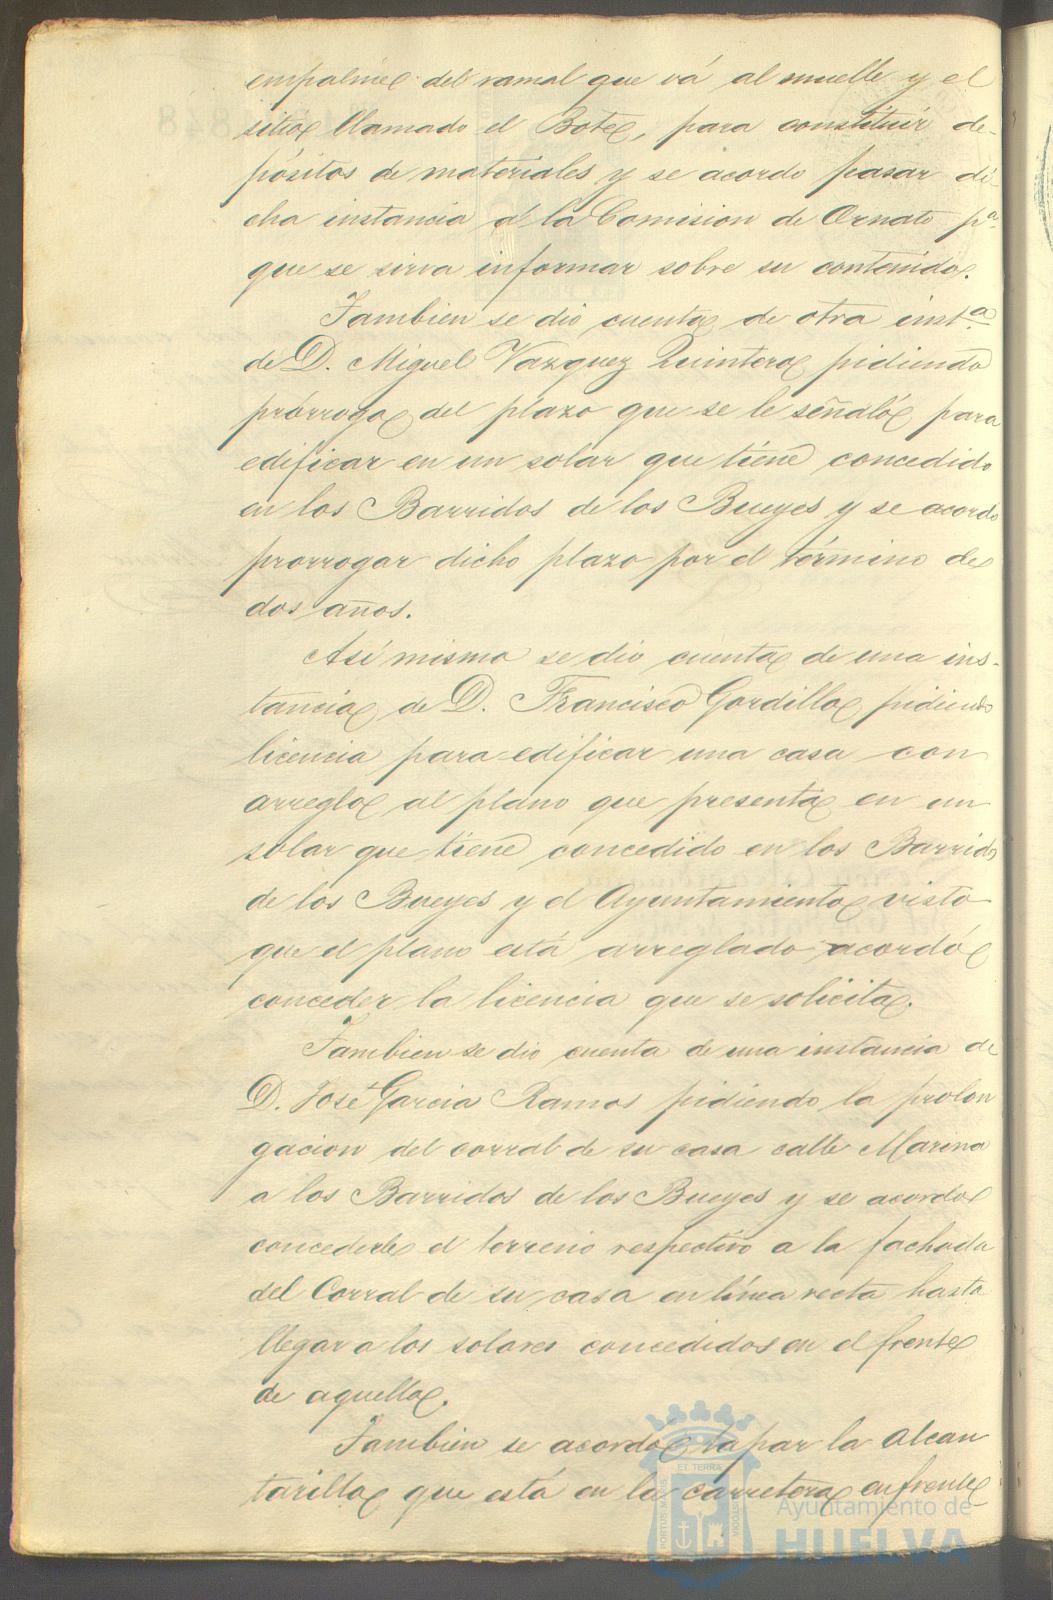 empalme del ramal que vá al muelle y el
sitio llamado el Bote, para constituir de-
pósitos de materiales y se acordo pasar di
cha instancia á la Comision de Ornato pª
que se sirva informar sobre su contenido.
Tambien se dió cuenta de otra instª
de D. Miguel Vazquez Quintero pidiendo
prórroga del plazo que se le señaló para
edificar en un solar que tiene concedido
en los Barridos de los Bueyes y se acordó
prorrogar dicho plazo por el término de
dos años.
Asi mismo se dió cuenta de una ins-
tancia de D. Francisco Gordillo pidiendo
licencia para edificar una casa con
arreglo al plano que presenta en un
solar que tiene concedido en los Barridos
de los Bueyes y el Ayuntamiento visto
que el plano está arreglado acordó
conceder la licencia que se solicita.
Tambien se dio cuenta de una instancia de
D. José Garcia Ramos pidiendo la prolon
gacion del corral de su casa calle Marina
a los Barridos de los Bueyes y se acordo
concederle el terreno respectivo a la fachada
del Corral de su casa en línea recta hasta
llegar a los solares concedidos en el frente
de aquella.
Tambien se acordó tapar la alcan
tarilla que está en la carretera enfrente
PORTUS MARIS
ET TERRA
CUSTODIA
Ayuntamiento de
HUELVA